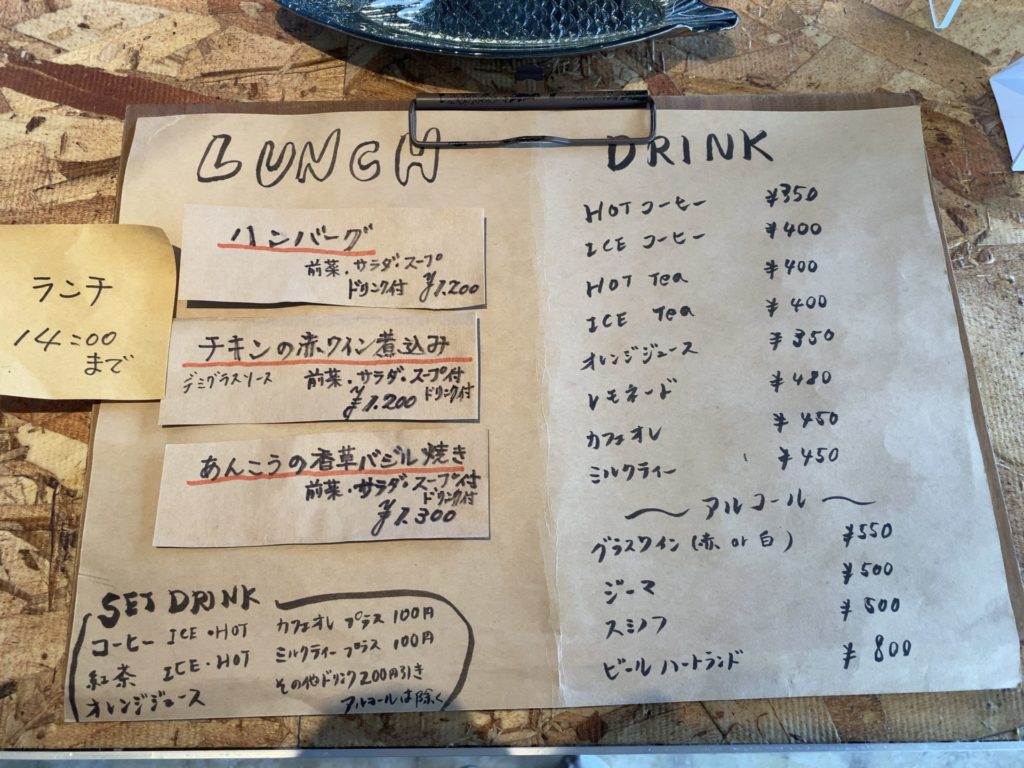 LUNCH
ハンバーグ
前菜・サラダ・スープ
ドリンク付 ¥1.200
ランチ
14:00
まで
チキンの赤ワイン煮込み
デミグラスソース 前菜・サラダ・スープ付
¥1.200 ドリンク付
あんこうの香草バジル焼き
前菜・サラダ・スープ付
ドリンク付
¥1.300
SET DRINK
コーヒー ICE・HOT
紅茶 ICE・HOT
オレンジジュース
カフェオレ プラス 100円
ミルクティー プラス 100円
その他ドリンク200円引き
アルコールは除く
DRINK
HOT コーヒー ¥350
ICE コーヒー ¥400
HOT Tea ¥400
ICE Tea ¥400
オレンジジュース ¥350
レモネード ¥480
カフェオレ ¥450
ミルクティー ¥450
〜 アルコール 〜
グラスワイン (赤 or 白) ¥550
ジーマ ¥500
スミノフ ¥500
ビール ハートランド ¥800